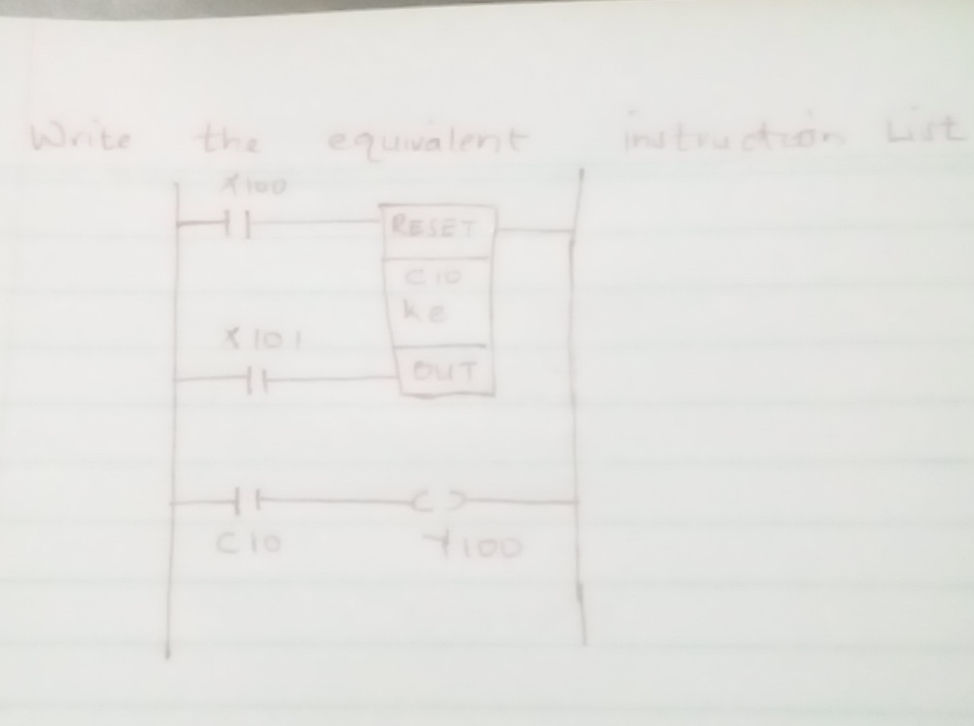 Write the equivalent instruction List
X100
RESET
C10
ke
X101
OUT
C10 Y100